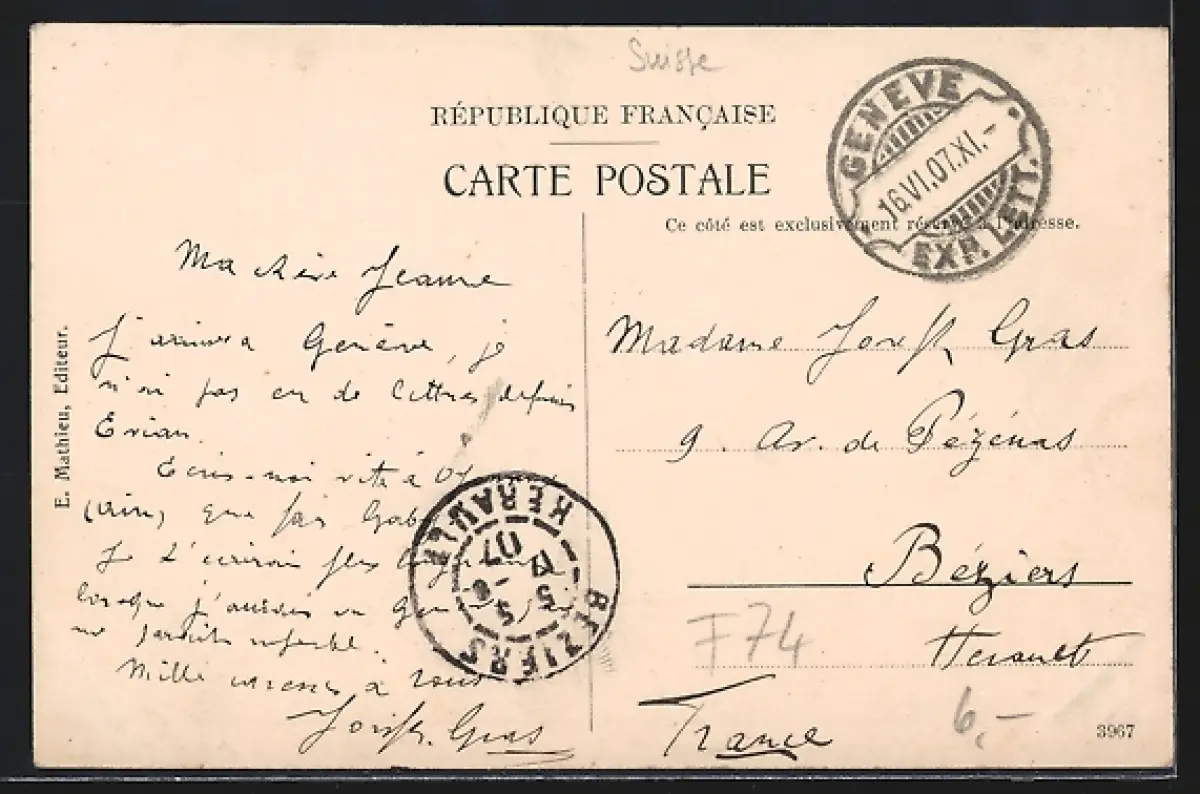 Suisse
RÉPUBLIQUE FRANÇAISE
CARTE POSTALE
Ce côté est exclusivement réservé à l'adresse.
GENÈVE
16.VI.07.XI.–
EXP. LETT.
E. Mathieu, Editeur.
Ma chère Jeanne
J'arrive à Genève, je
n'ai pas eu de lettres depuis
Evian.
Ecris-moi vite à
(Ain)
Je t'écrirai plus
lorsque j'aurai vu
Mille caresses à tous
Joseph Gras
BEZIERS
HERAULT
07
Madame Joseph Gras
9. Av. de Pézénas
Béziers
Herault
France
F74
6,–
3967